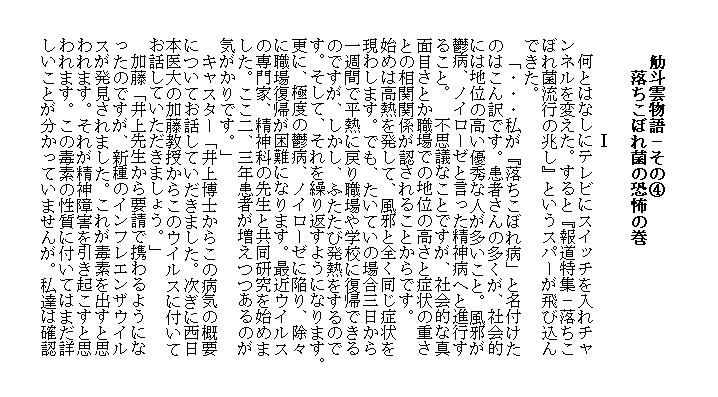 觔斗雲物語－その④
落ちこぼれ菌の恐怖の巻
Ⅰ
何とはなしにテレビにスイッチを入れチャ
ンネルを変えた。すると『報道特集－落ちこ
ぼれ菌流行の兆し』というスパーが飛び込ん
できた。
「・・・私が『落ちこぼれ病」と名付けた
のはこん訳です。患者さんの多くが、社会的
には地位の高い優秀な人が多いこと。風邪が
鬱病、ノイローゼと言った精神病へと進行す
ること。 不思議なことですが、社会的な真
面目さとか職場での地位の高さと症状の重さ
との相関関係が認されることからです。
始めは高熱を発して、風邪と全く同じ症状を
現わします。でも、たいていの場合三日から
一週間で平熱に戻り職場や学校に復帰できる
のですが、しかし、ふたたび発熱をするので
す。そして、それを繰り返すようになります。
更に、極度の鬱病、ノイローゼに陥り、除々
に職場復帰が困難になります。最近ウイルス
の専門家、精神科の先生と共同研究を始めま
した。ここ二、三年患者が増えつつあるのが
気がかりです。」
キャスター「井上博士からこの病気の概要
についてお話していだきました。次ぎに西日
本医大の加藤教授からこのウイルスに付いて
お話していただきましょう。」
加藤「井上先生から要請で携わるようにな
ったのですが、新種のインフレエンザウイル
スが発見されました。これが毒素を出すと思
われます。それが精神障害を引き起こすと思
われます。この毒素の性質に付いてはまだ詳
しいことが分かっていませんが。私達は確認